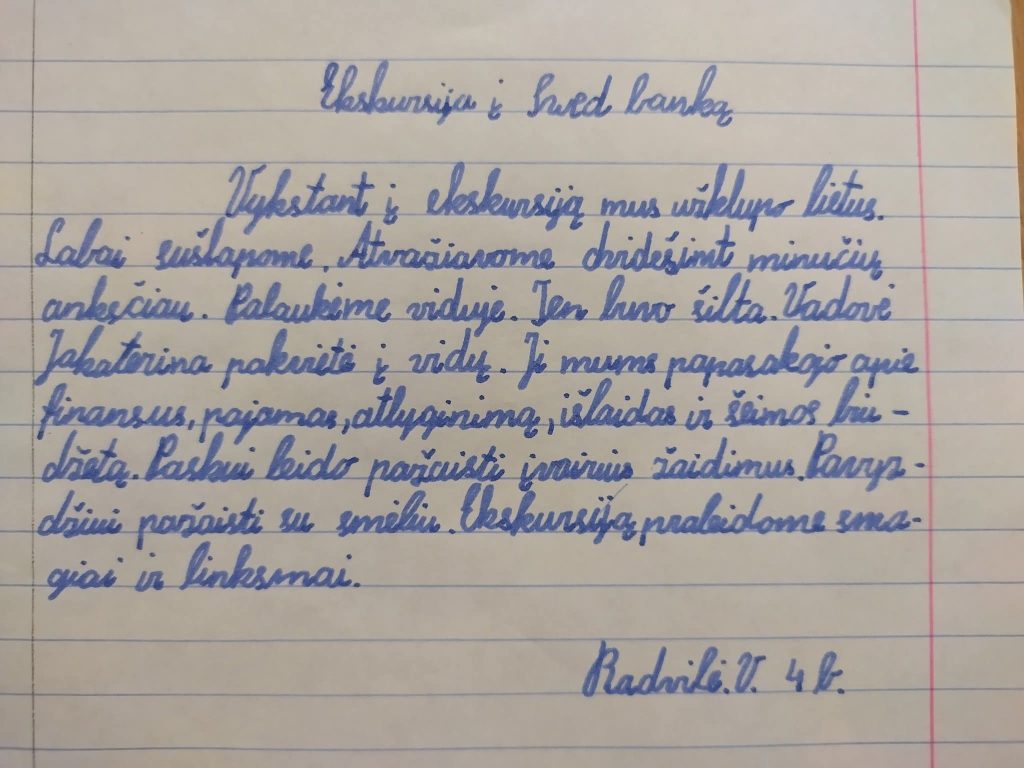 Ekskursija į Swed banką
Vykstant į ekskursiją mus užklupo lietus.
Labai sušlapome. Atvažiavome dvidešimt minučių
anksčiau. Palaukėme viduje. Ten buvo šilta. Vadovė
Jakaterina pakvietė į vidų. Ji mums papasakojo apie
finansus, pajamas, atlyginimą, išlaidas ir šeimos biu-
džetą. Paskui leido pažaisti įvairius žaidimus. Pavyz-
džiui pažaisti su smėliu. Ekskursiją praleidome sma-
giai ir linksmai.
Radvilė. V. 4 b.